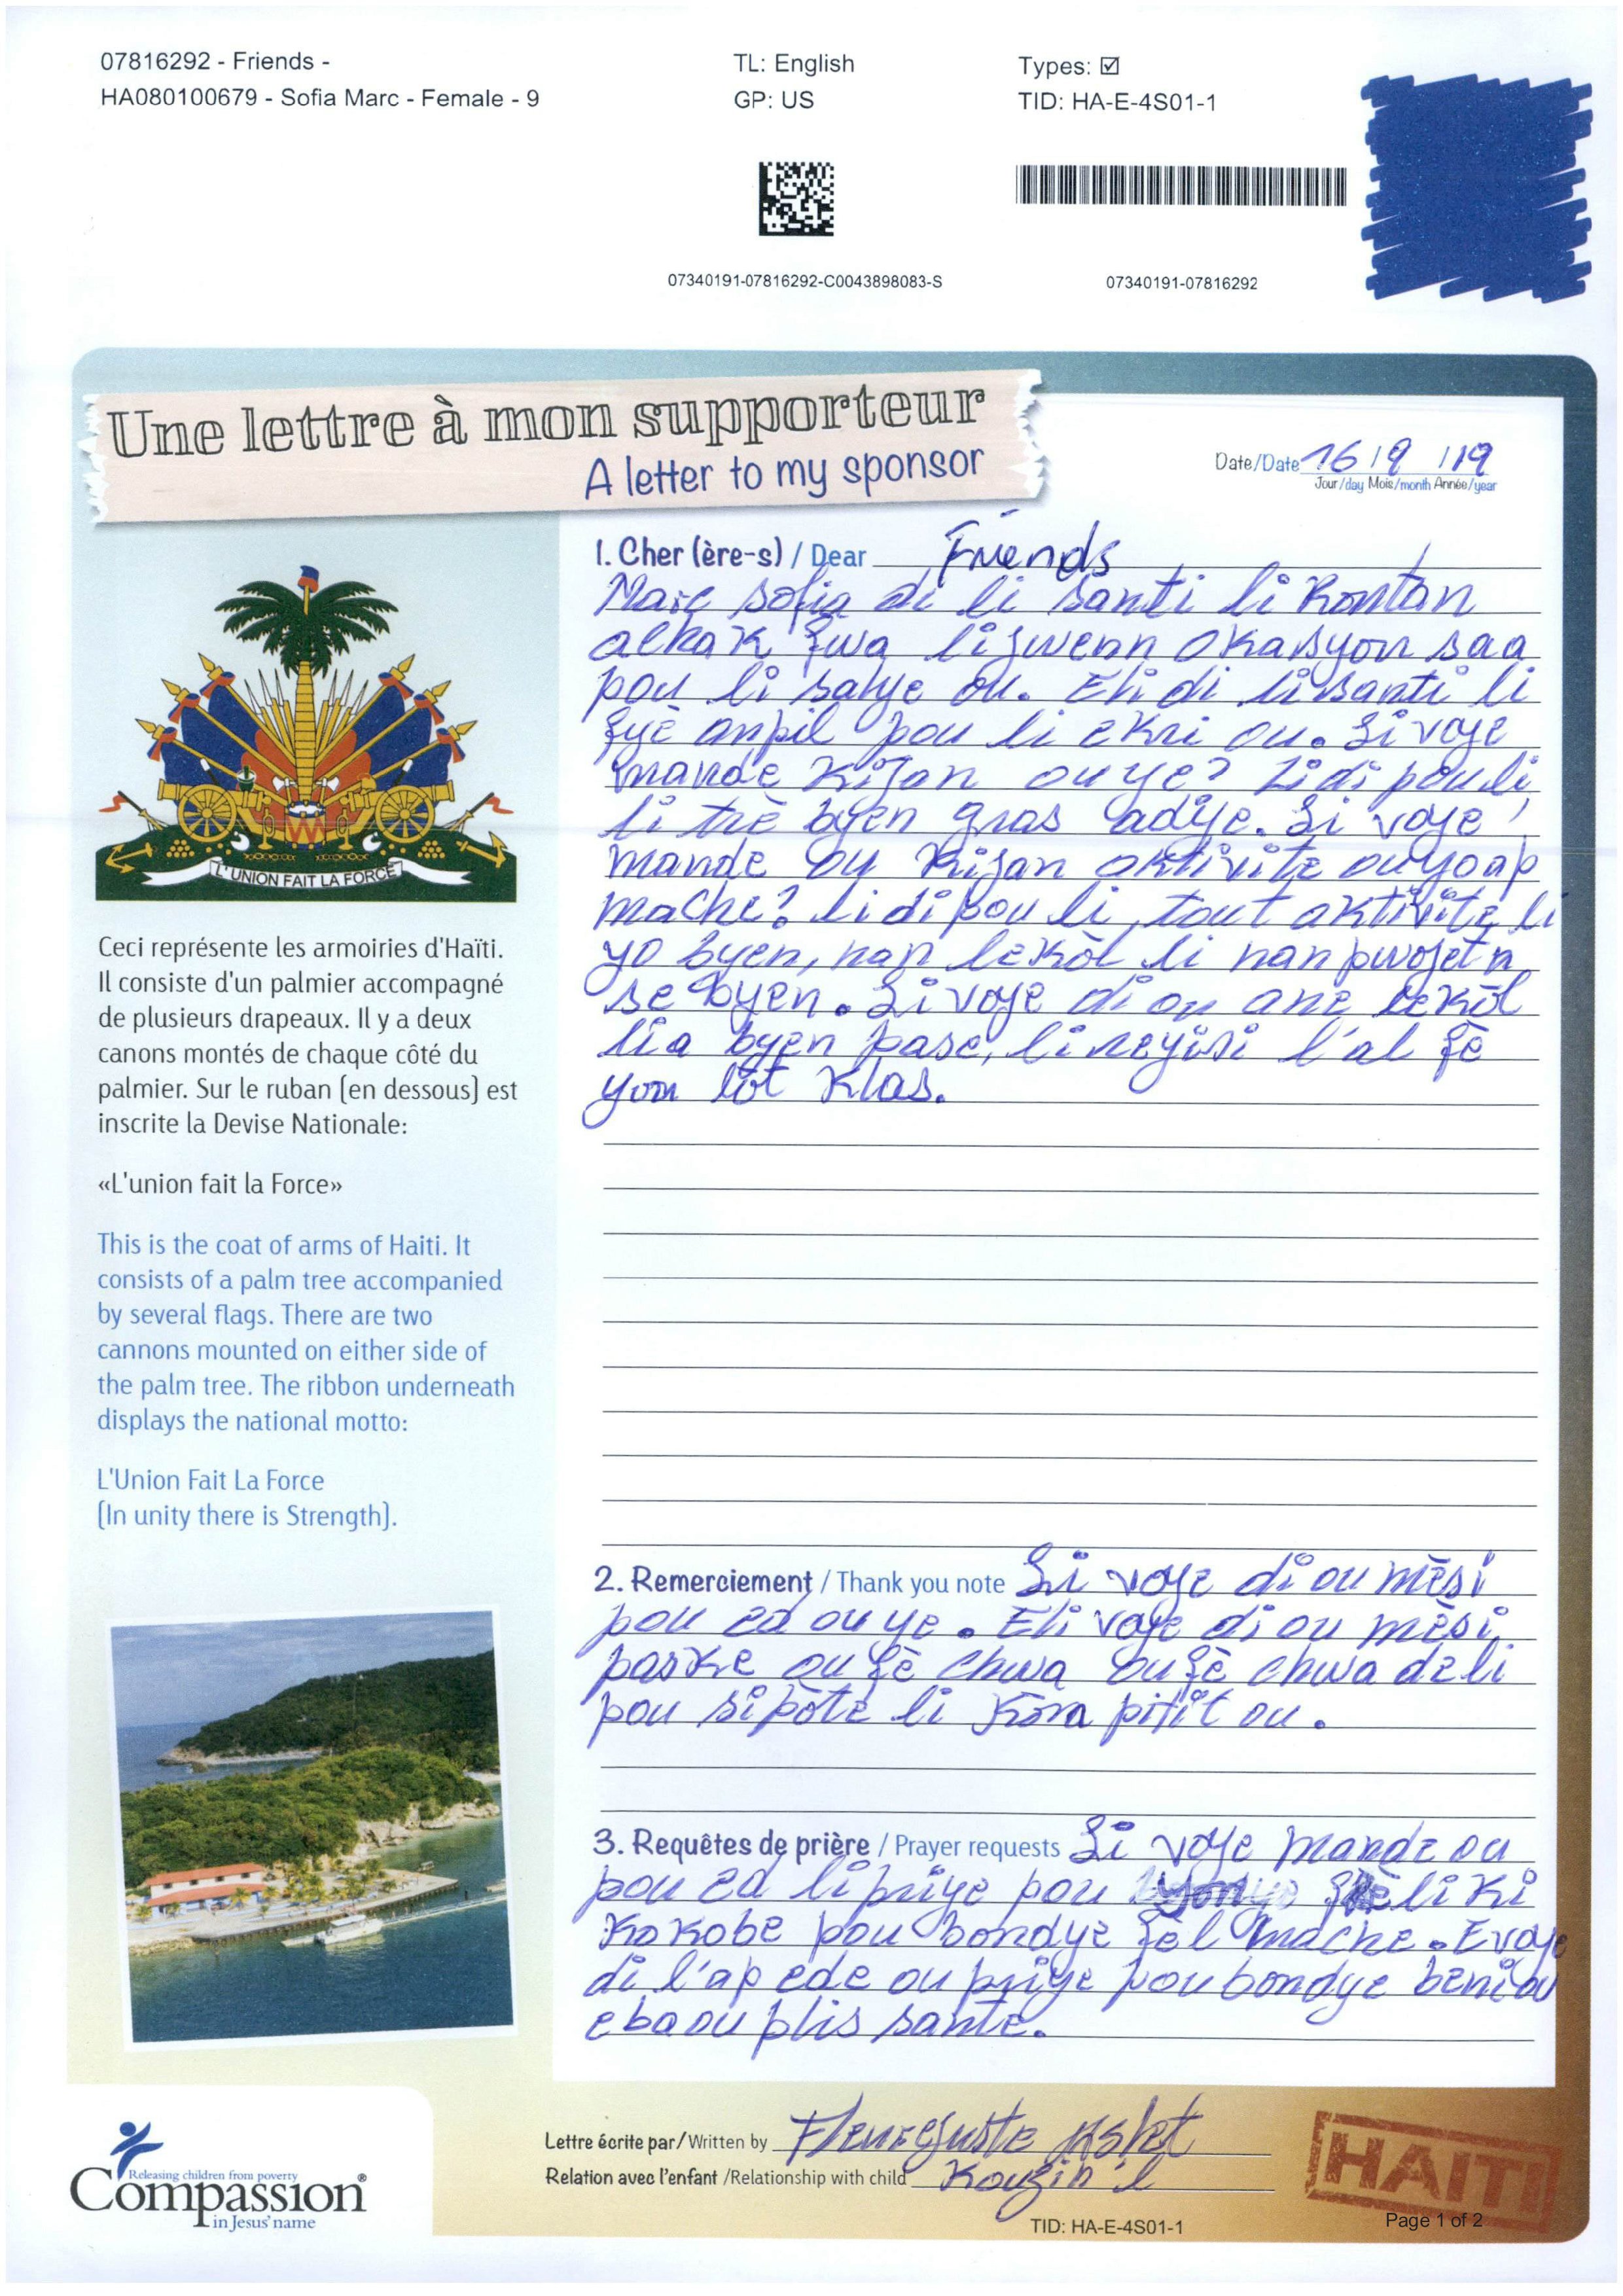 07816292 - Friends -
HA080100679 - Sofia Marc - Female - 9
TL: English
GP: US
Types: ☑
TID: HA-E-4S01-1
07340191-07816292-C0043898083-S
07340191-07816292
Une lettre à mon supporteur
A letter to my sponsor
Date/Date 16/9/19
Jour/day Mois/month Année/year
L'UNION FAIT LA FORCE
Ceci représente les armoiries d'Haïti.
Il consiste d'un palmier accompagné
de plusieurs drapeaux. Il y a deux
canons montés de chaque côté du
palmier. Sur le ruban (en dessous) est
inscrite la Devise Nationale:
«L'union fait la Force»
This is the coat of arms of Haiti. It
consists of a palm tree accompanied
by several flags. There are two
cannons mounted on either side of
the palm tree. The ribbon underneath
displays the national motto:
L'Union Fait La Force
(In unity there is Strength).
1. Cher (ère-s) / Dear Friends
Marc Sofia di li santi li kontan
chak fwa li jwenn okasyon saa
pou li salye ou. Eli di li santi li
fyè anpil pou li ekri ou. Li voye
mande kijan ou ye? Li di pou li
li trè byen gras adye. Li voye
mande ou kijan aktivite ou yo ap
mache? Li di pou li, tout aktivite li
yo byen, nan lekòl li nan pwojet n
se byen. Li voye di ou ane lekòl
lia byen pase, li reyisi l'al fè
yon lòt klas.
2. Remerciement / Thank you note Li voye di ou mèsi
pou ed ou ye. Eli voye di ou mèsi
paske ou fè chwa ou fè chwa de li
pou sipòte li kòm pitit ou.
3. Requêtes de prière / Prayer requests Li voye mande ou
pou ed li priye pou frè li ki
kokobe pou bondye fè l mache. E voye
di l'ap ede ou priye pou bondye beni ou
e ba ou plis sante.
Lettre écrite par/Written by
Relation avec l'enfant /Relationship with child Kouzin'l
Releasing children from poverty
Compassion®
in Jesus' name
HAITI
TID: HA-E-4S01-1
Page 1 of 2